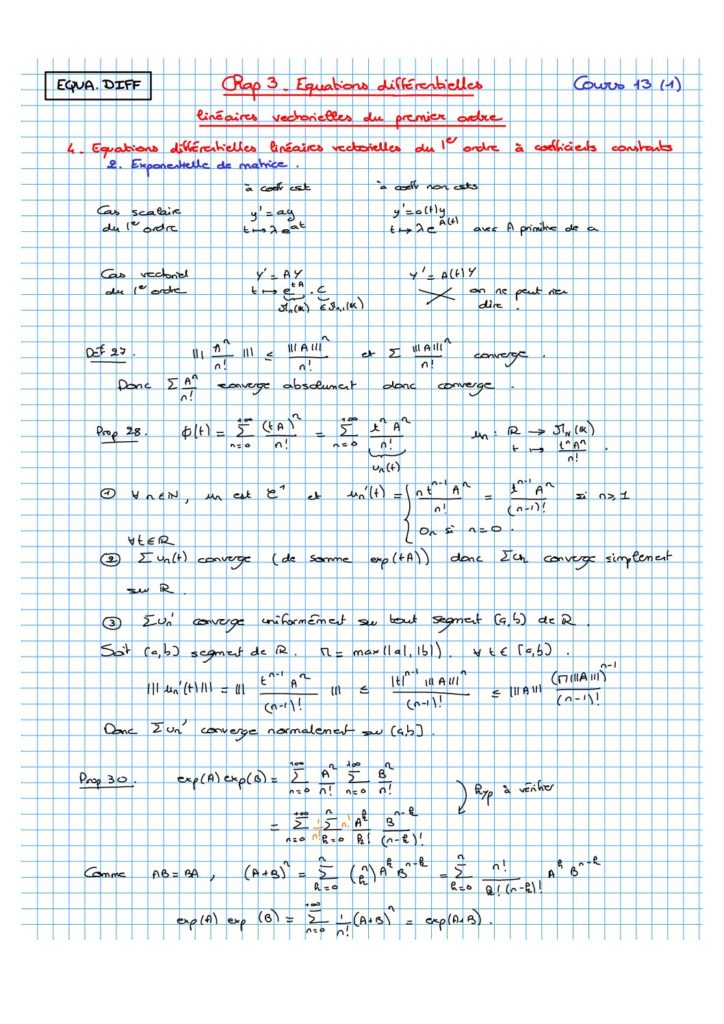 EQUA. DIFF
Chap 3 - Equations différentielles
Cours 13 (1)
linéaires vectorielles du premier ordre
4. Equations différentielles linéaires vectorielles du 1er ordre à coefficients constants
2. Exponentielle de matrice.
à coeff cst à coeff non csts
Cas scalaire y' = ay y' = a(t)y
du 1er ordre t ↦ λe^{at} t ↦ λe^{A(t)} avec A primitive de a
Cas vectoriel Y' = AY Y' = A(t)Y
du 1er ordre t ↦ e^{tA} . C on ne peut rien
𝓜n(K) ∈ 𝓜n,1(K) dire.
Déf 27. ||| A^n/n! ||| ≤ |||A|||^n/n! et Σ |||A|||^n/n! converge.
Donc Σ A^n/n! converge absolument donc converge.
Prop 28. ϕ(t) = Σ_{n=0}^{+∞} (tA)^n/n! = Σ_{n=0}^{+∞} t^n A^n/n! un : ℝ → 𝓜n(K)
un(t) t ↦ t^n A^n/n! .
① ∀ n∈ℕ, un est C^1 et un'(t) = { n t^{n-1} A^n/n! = t^{n-1} A^n/(n-1)! si n ≥ 1
0n si n = 0.
∀t∈ℝ
② Σ un(t) converge (de somme exp(tA)) donc Σun converge simplement
sur ℝ.
③ Σun' converge uniformément sur tout segment [a,b] de ℝ.
Soit [a,b] segment de ℝ. M = max(|a|, |b|). ∀ t ∈ [a,b].
||| un'(t) ||| = ||| t^{n-1} A^n/(n-1)! ||| ≤ |t|^{n-1} |||A|||^n/(n-1)! ≤ |||A||| (M|||A|||)^{n-1}/(n-1)!
Donc Σun' converge normalement sur [a,b].
Prop 30. exp(A) exp(B) = Σ_{n=0}^{+∞} A^n/n! Σ_{n=0}^{+∞} B^n/n!
hyp à vérifier
= Σ_{n=0}^{+∞} 1/n! Σ_{k=0}^{n} n! A^k/k! B^{n-k}/(n-k)!
Comme AB = BA, (A+B)^n = Σ_{k=0}^{n} (n k) A^k B^{n-k} = Σ_{k=0}^{n} n!/k!(n-k)! A^k B^{n-k}
exp(A) exp (B) = Σ_{n=0}^{+∞} 1/n! (A+B)^n = exp(A+B).